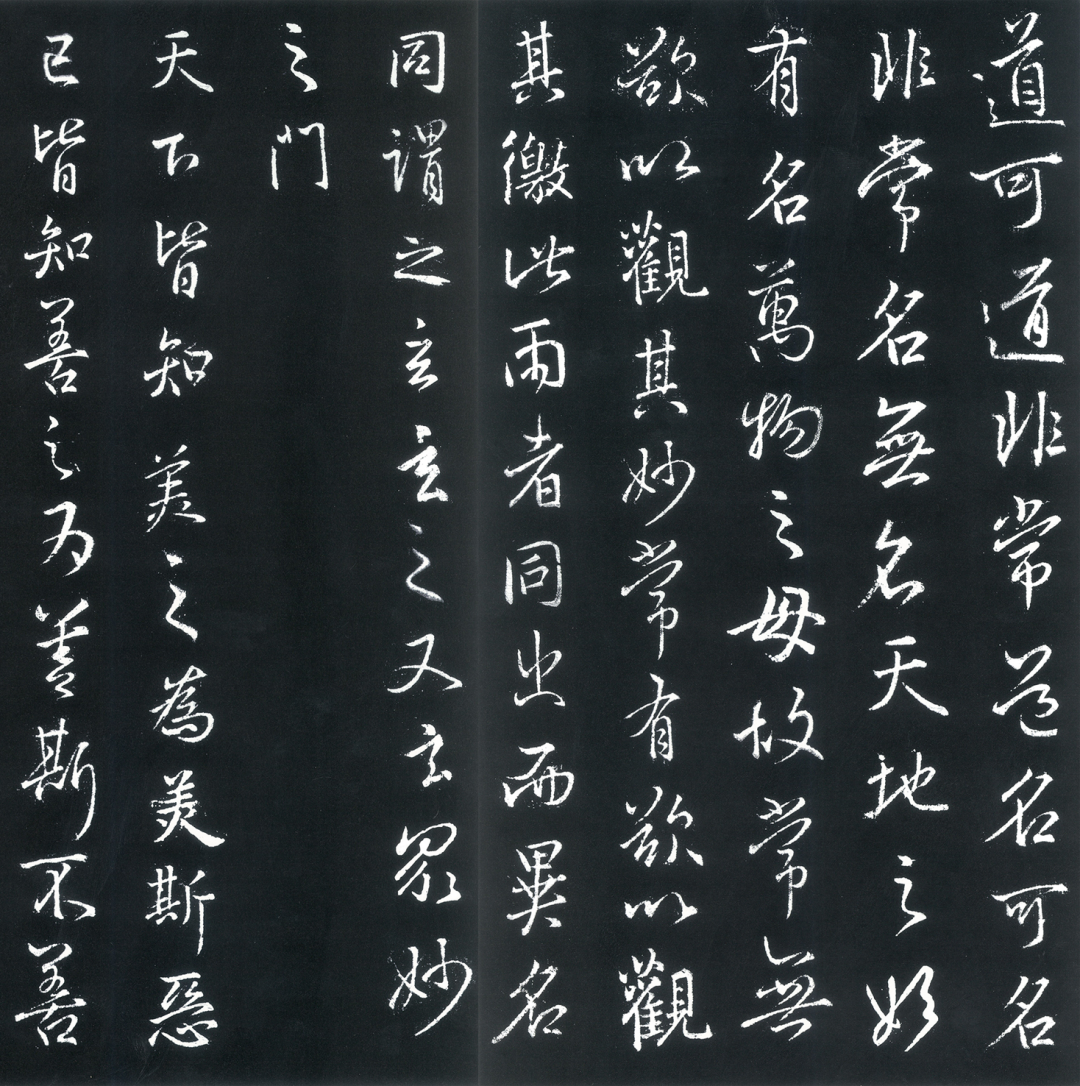 道可道非常道名可名
非常名無名天地之始
有名萬物之母故常無
欲以觀其妙常有欲以觀
其徼此兩者同出而異名
同謂之玄玄之又玄眾妙
之門
天下皆知美之為美斯惡
已皆知善之为善斯不善